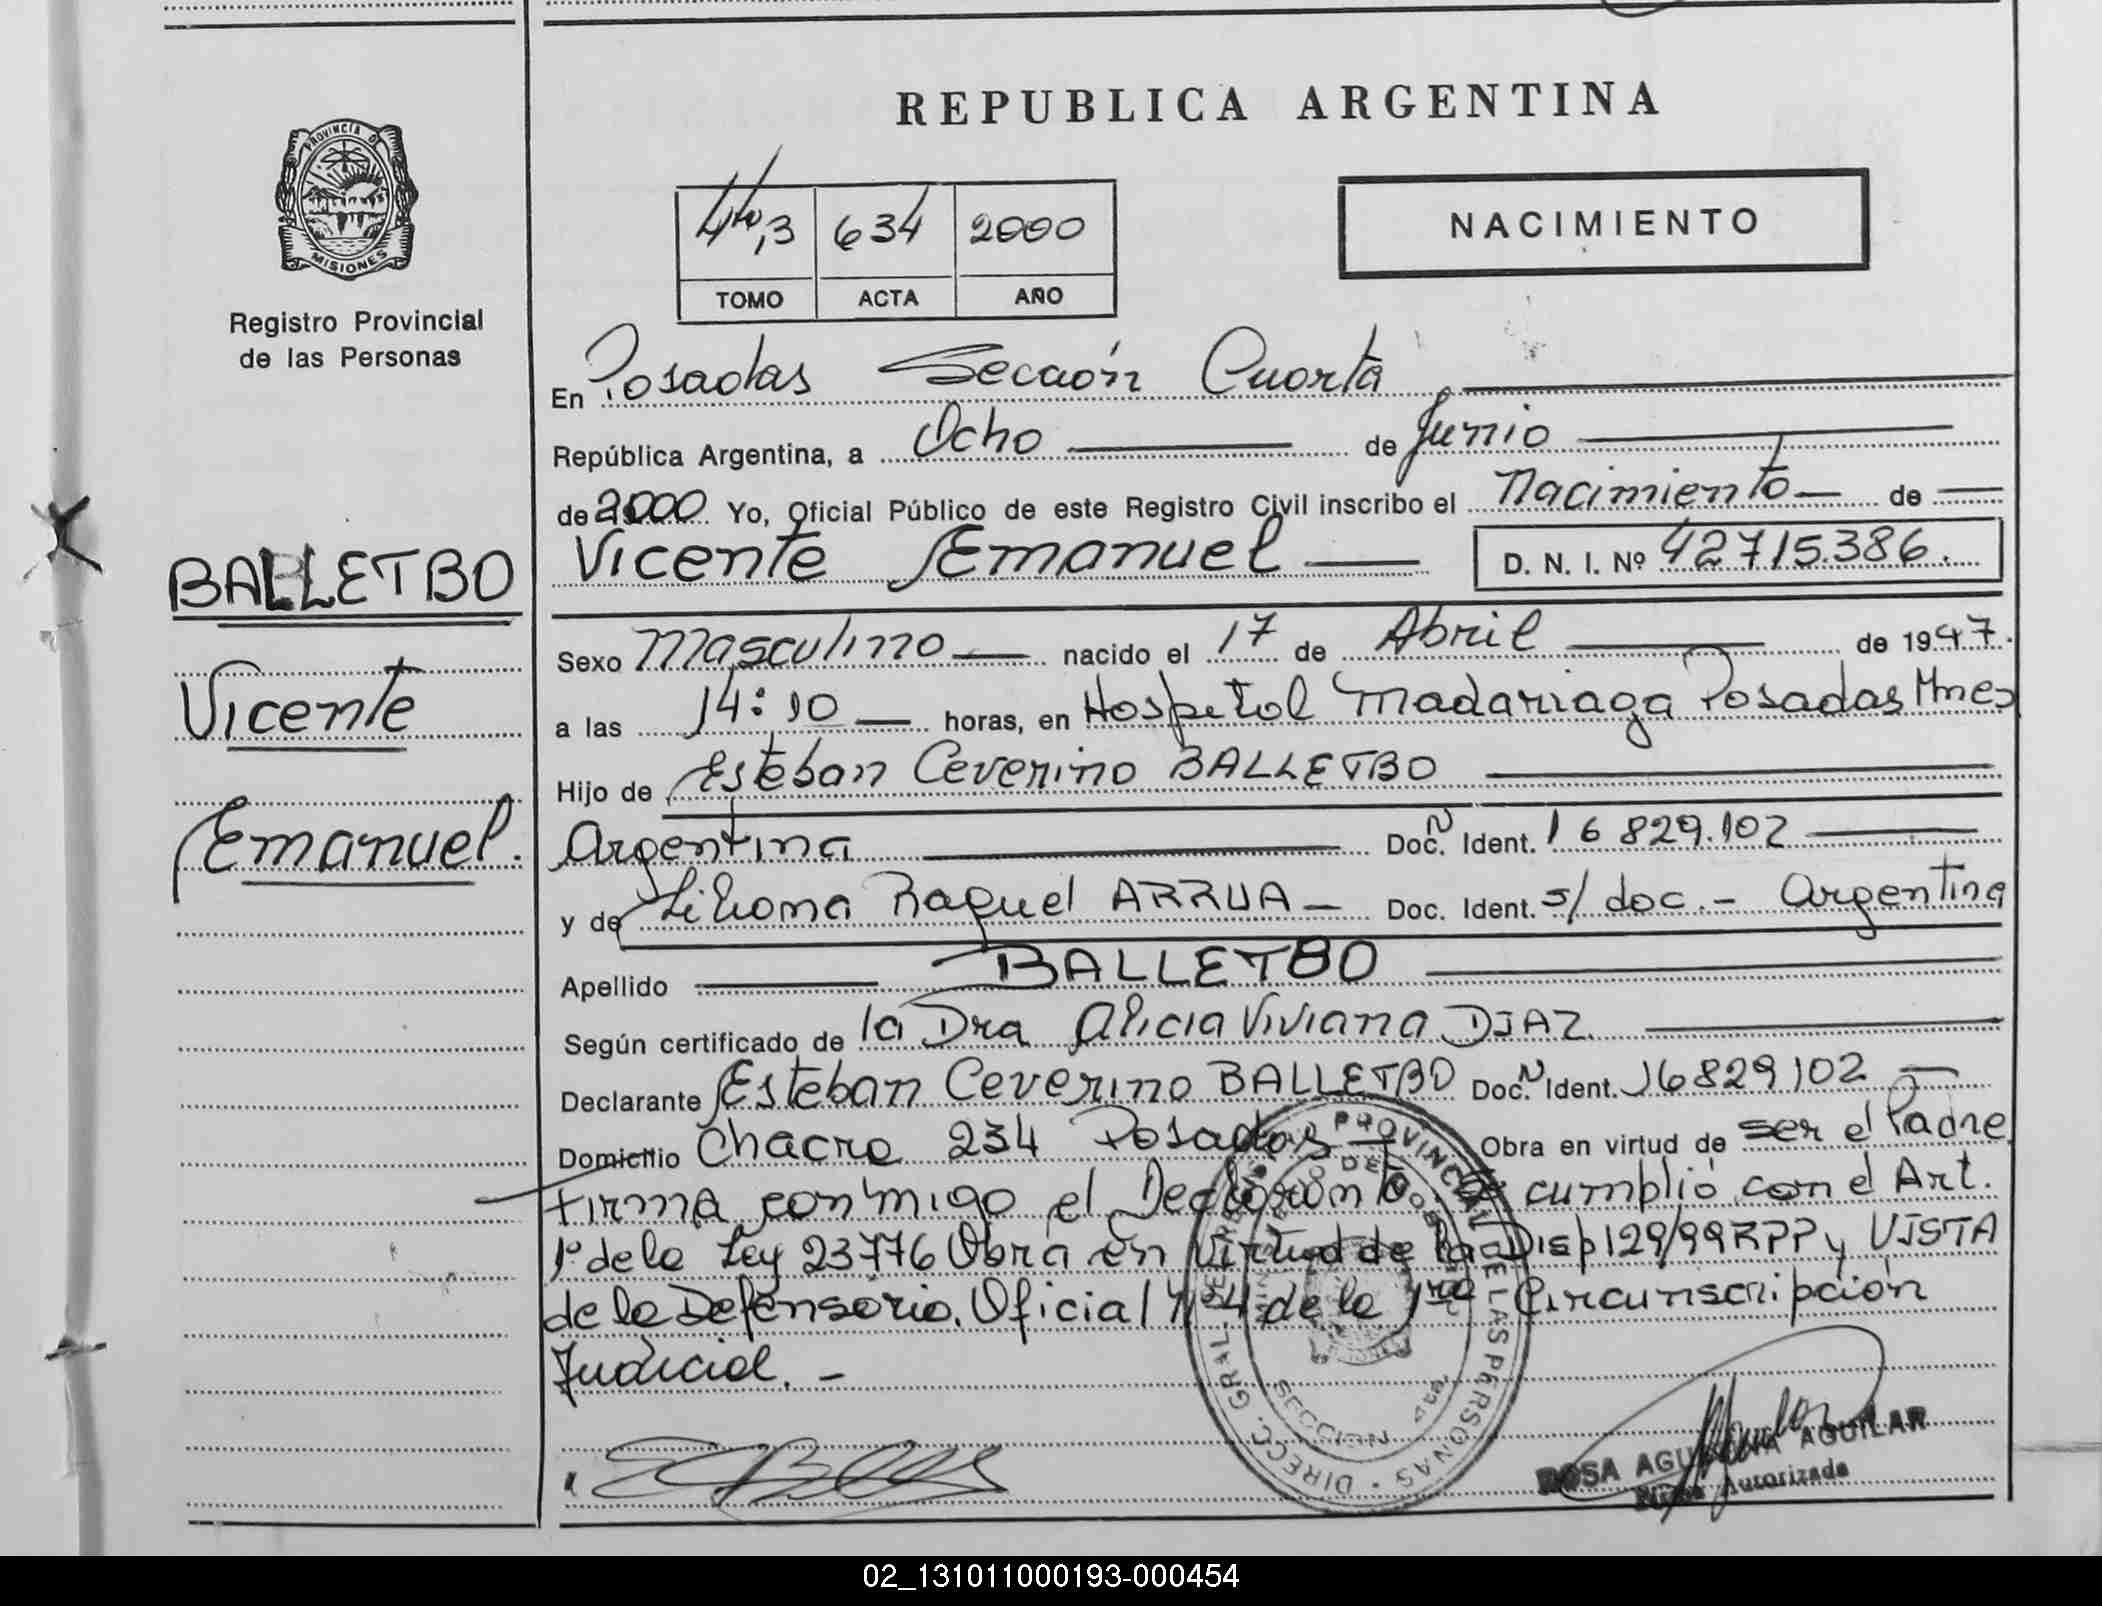 REPUBLICA ARGENTINA
PROVINCIA DE
MISIONES
Registro Provincial
de las Personas
4to,3 634 2000
TOMO ACTA AÑO
NACIMIENTO
En Posadas Sección Cuarta
República Argentina, a Ocho de Junio
de 2000 Yo, Oficial Público de este Registro Civil inscribo el Nacimiento de
Vicente Emanuel D. N. I. Nº 42715.386.
BALLETBO
Vicente
Emanuel.
Sexo Masculino nacido el 17 de Abril de 1997.
a las 14:10 horas, en Hospital Madariaga Posadas Mnes
Hijo de Esteban Ceverino BALLETBO
Argentina Doc. N Ident. 16829.102
y de Liliana Raquel ARRUA - Doc. Ident. s/doc. - Argentina
Apellido BALLETBO
Según certificado de la Dra Alicia Viviana DIAZ
Declarante Esteban Ceverino BALLETBO Doc. N Ident. 16829102
Domicilio Chacra 234 Posadas Obra en virtud de ser el Padre
firma conmigo el Declarante Se cumplió con el Art.
1º de la Ley 23776 Obra en Virtud de la Disp 129/99 RPP y VISTA
de la Defensoria Oficial Nº4 de la 1ra Circunscripción
Judicial. -
DIRECC. GRAL. PROVINCIAL DE LAS PERSONAS
SECCION
ROSA AGUILAR
Autorizada
02_131011000193-000454